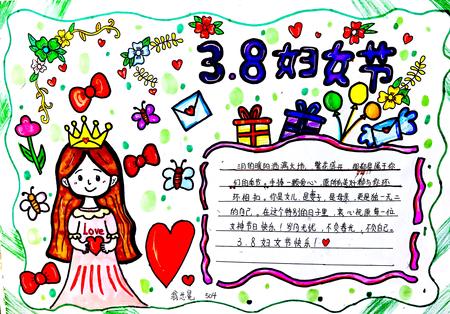 3.8妇女节
3月的暖阳洒满大地,繁花盛开
们的季节,手持一颗爱心,愿所有美好都与你环
环相扣,你是女儿,是妻子,是母亲,更是独一无二
的自己,在这个特别的日子里,衷心祝愿每一位
女神节日快乐!岁月无忧,不负春光,不负自己。
3.8妇女节快乐!
Love
504